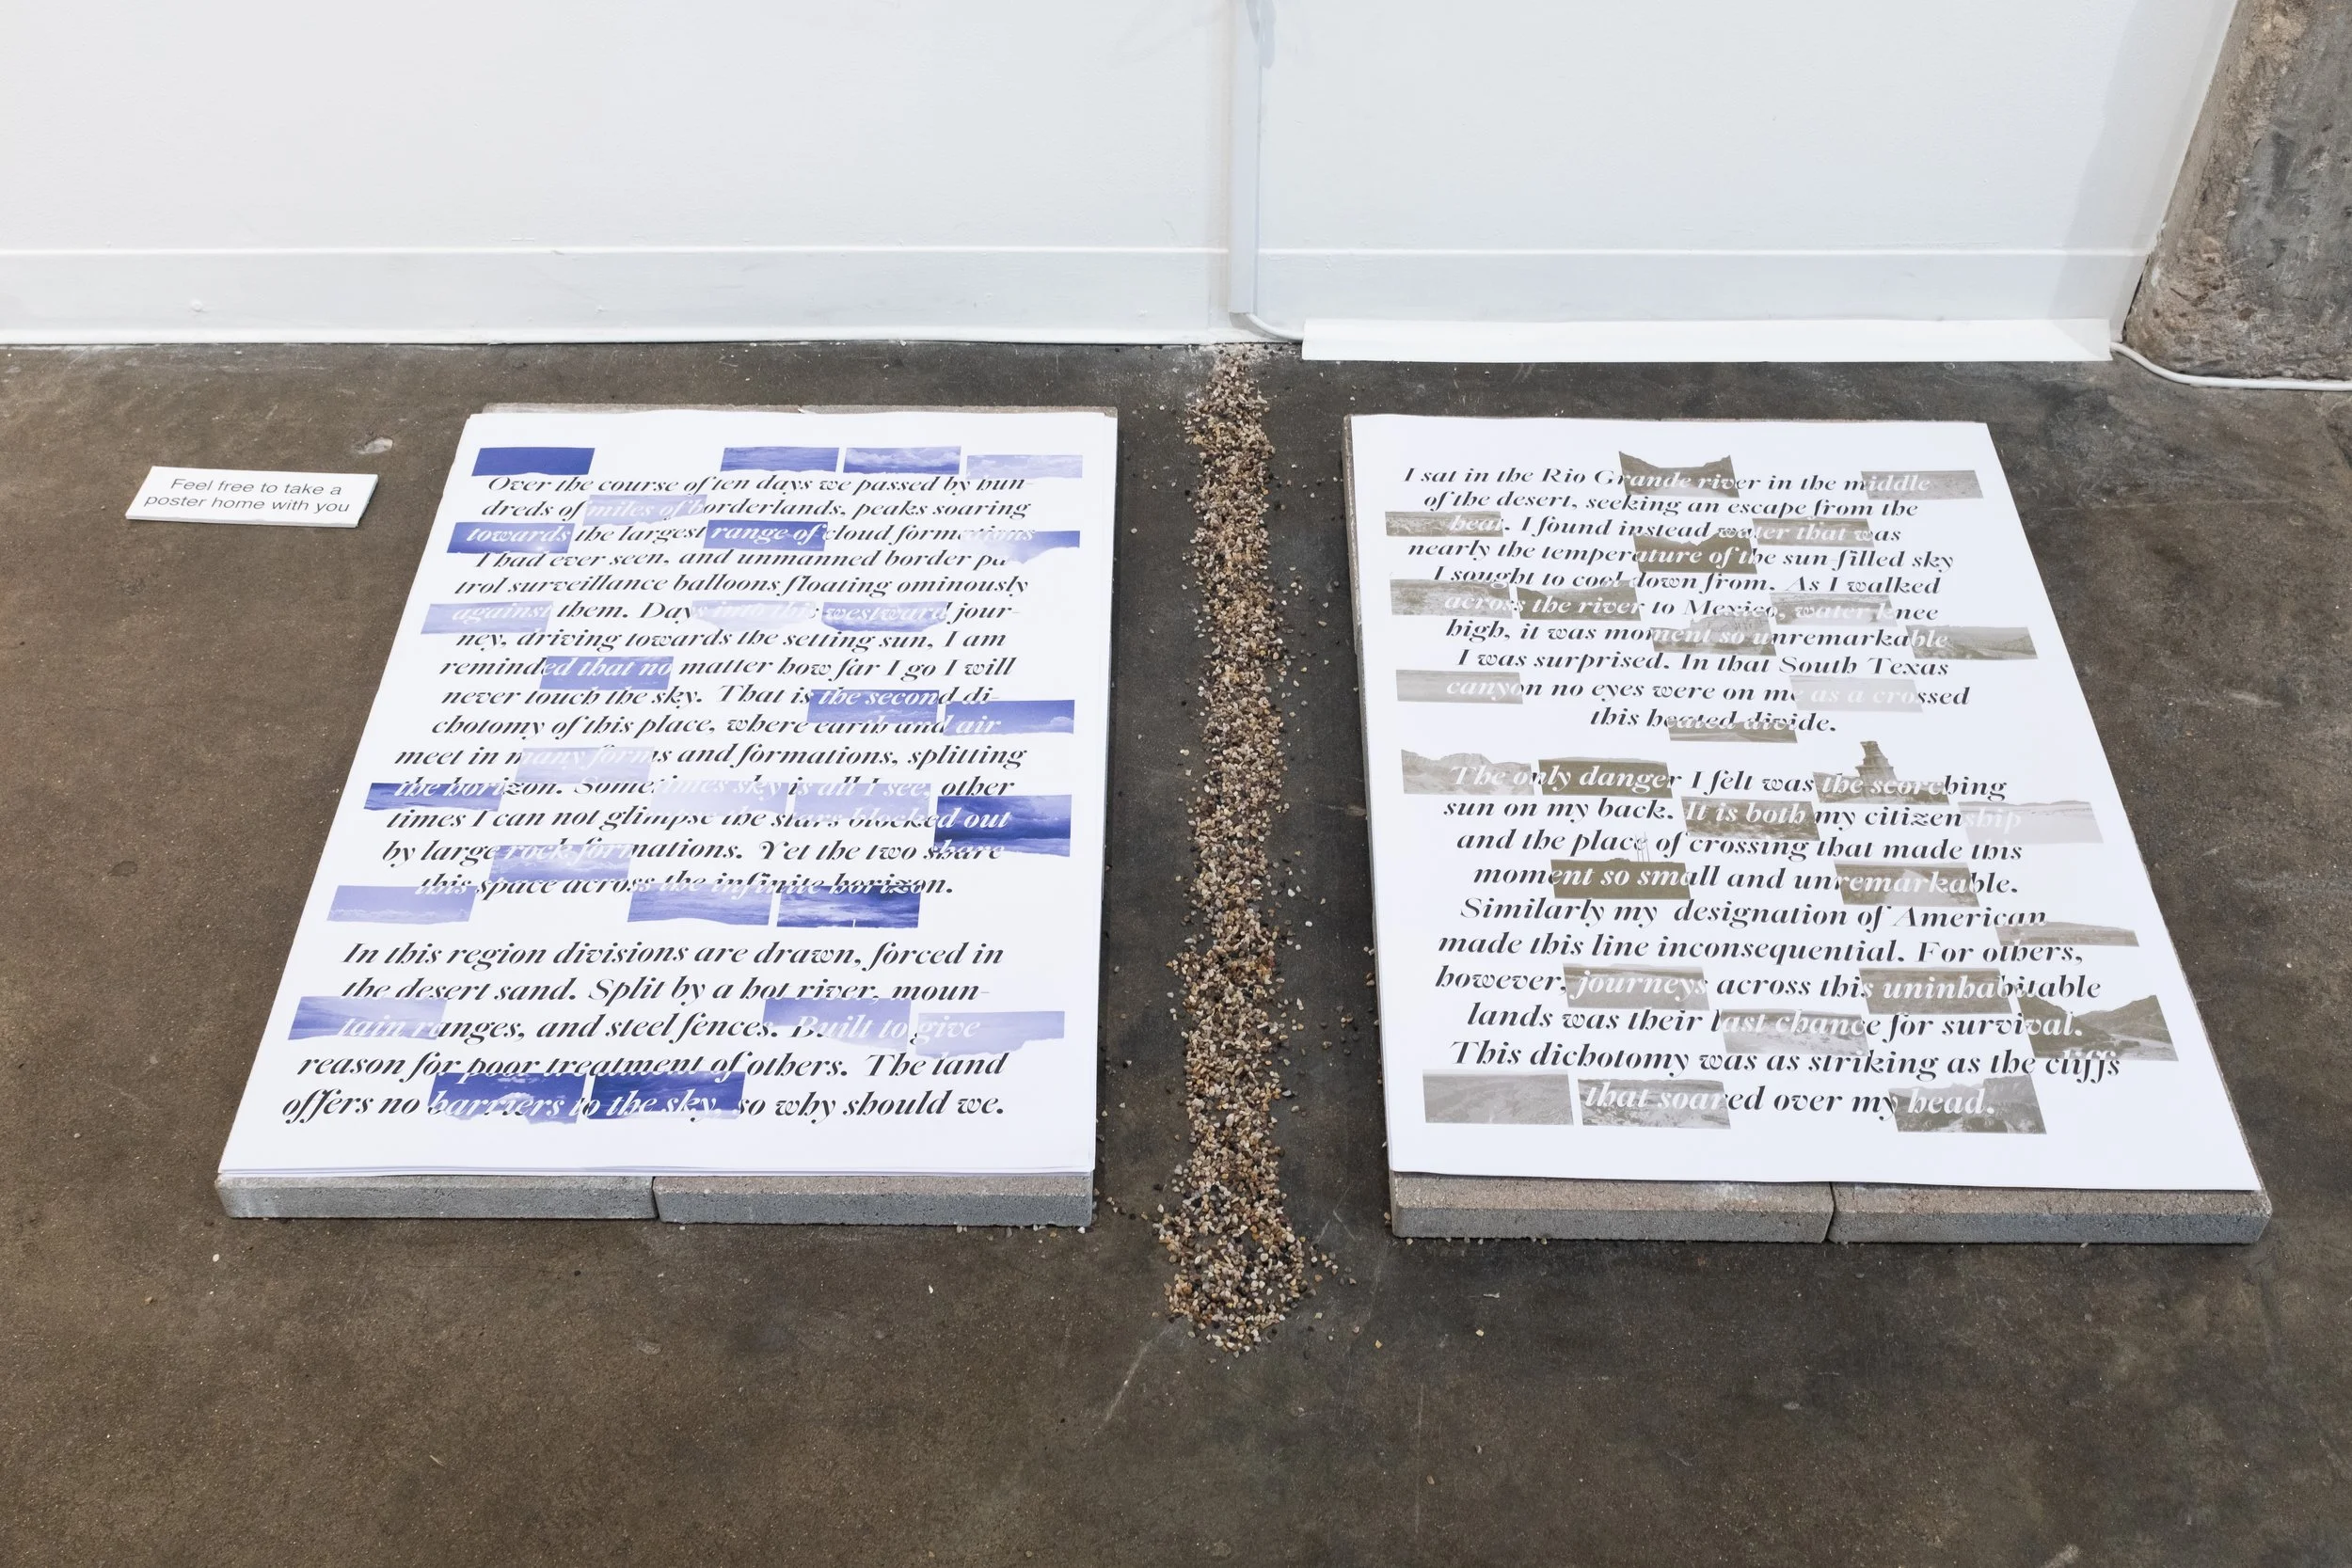 Feel free to take a
poster home with you
Over the course of ten days we passed by hun-
dreds of miles of borderlands, peaks soaring
towards the largest range of cloud formations
I had ever seen, and unmanned border pa-
trol surveillance balloons floating ominously
against them. Days into this westward jour-
ney, driving towards the setting sun, I am
reminded that no matter how far I go I will
never touch the sky. That is the second di-
chotomy of this place, where earth and air
meet in many forms and formations, splitting
the horizon. Sometimes sky is all I see, other
times I can not glimpse the stars blocked out
by large rock formations. Yet the two share
this space across the infinite horizon.
In this region divisions are drawn, forced in
the desert sand. Split by a hot river, moun-
tain ranges, and steel fences. Built to give
reason for poor treatment of others. The land
offers no barriers to the sky, so why should we.
I sat in the Rio Grande river in the middle
of the desert, seeking an escape from the
heat. I found instead water that was
nearly the temperature of the sun-filled sky
I sought to cool down from. As I walked
across the river to Mexico, water knee
high, it was moment so unremarkable
I was surprised. In that South Texas
canyon no eyes were on me as a crossed
this heated divide.
The only danger I felt was the scorching
sun on my back. It is both my citizenship
and the place of crossing that made this
moment so small and unremarkable.
Similarly my designation of American
made this line inconsequential. For others,
however, journeys across this uninhabitable
lands was their last chance for survival.
This dichotomy was as striking as the cliffs
that soared over my head.